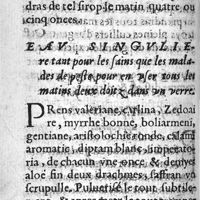 dras de tel sirop le matin, quatre ou
cinq onces.
EAV SINGVLIE-
re tant pour les sains que les mala-
des de peste, pour en vser tous les
matins, deux doitz dans un verre.
PRens valeriane, cyrlina, Zedoai
re, myrrhe bonne, boliarmeni,
gentiane, aristoloche ronde, calami
aromatic, diptam blanc, imperato-
ria, de chacun vne once, & demye
aloé fin deux drachmes, saffran vn
scrupulle. Puluerisé le tout subtile-